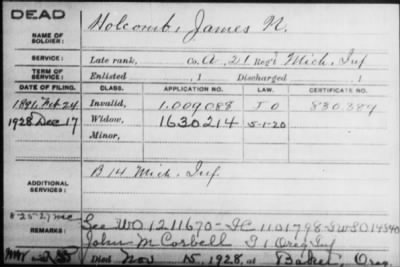 DEAD
NAME OF SOLDIER: Holcomb, James N.
SERVICE: Late rank, Co. A, 21 Reg't Mich. Inf
TERM OF SERVICE: Enlisted , 1 Discharged , 1
DATE OF FILING. CLASS. APPLICATION NO. LAW. CERTIFICATE NO.
1891 Feb 24 Invalid, 1.009088 J O 830.384
1928 Dec 17 Widow, 1630214 5-1-20
Minor,
ADDITIONAL SERVICES: B 14 Mich. Inf.
8-25-27
REMARKS: See WO 1211670-IC 1101798-
John M Corbell Oreg Inf
Died Nov 15, 1928, at Baker, Oreg.